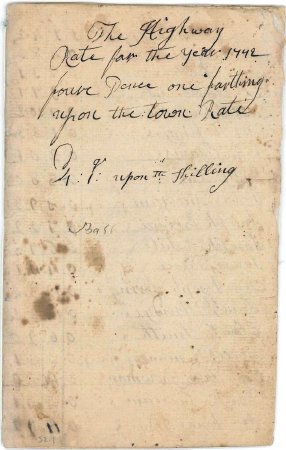 The Highway
Rate for the Year 1742
foure Pence one farthing
upon the town Rate
D q
4: 1: upon th Shilling
Bass